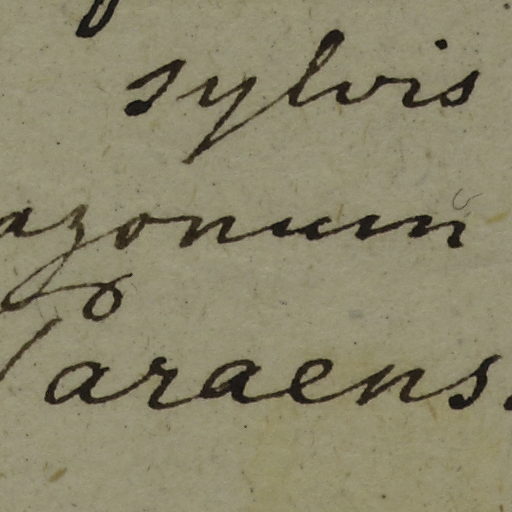 sylvis
azonum
Paraens.